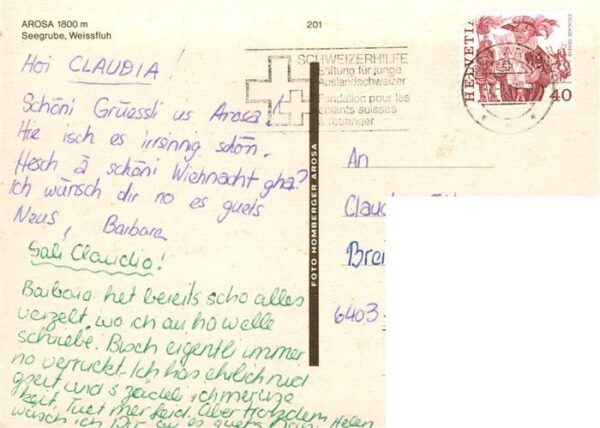 AROSA 1800 m
Seegrube, Weissfluh
201
Hoi CLAUDIA!
Schöni Grüessli us Arosa!
Hie isch es irrsinnig schön.
Hesch ä schöni Wiehnacht gha?
Ich wünsch dir no es guets
Neus, Barbara
Sali Claudia!
Barbara het bereits scho alles
verzelt, wo ich au ho welle
schriebe. Bisch eigentli immer
no verruckt. Ich has ehrlich
und s
Tuet mer leid. Aber trotzdem
wüsch ich Dir au es guets Helen
SCHWEIZERHILFE
Stiftung für junge
Auslandschweizer
Fondation pour les
enfants suisses
à l'étranger
HELVETIA
40
FOTO HOMBERGER AROSA
An
Claud
Brei
6403